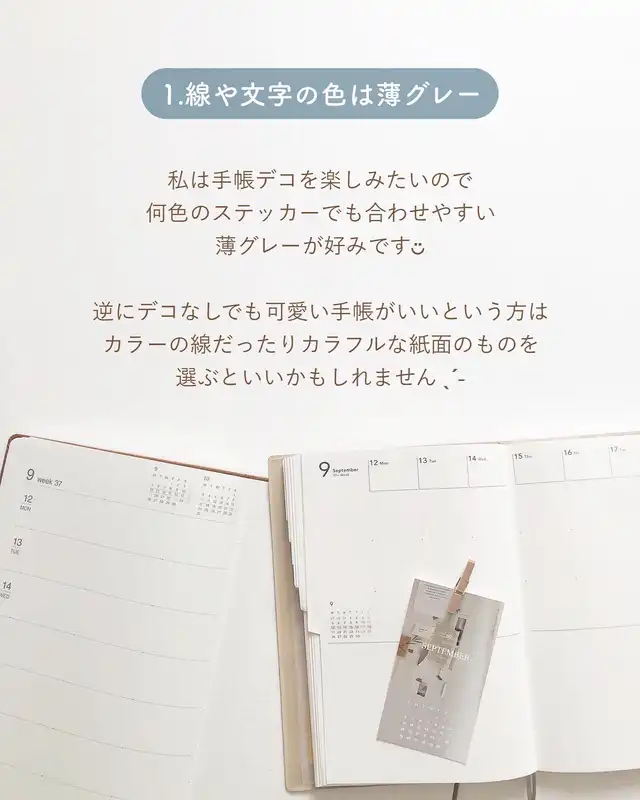 1.線や文字の色は薄グレー
私は手帳デコを楽しみたいので
何色のステッカーでも合わせやすい
薄グレーが好みです
逆にデコなしでも可愛い手帳がいいという方は
カラーの線だったりカラフルな紙面のものを
選ぶといいかもしれません ˎˊ˗
9 week 37
9
10
12
MON
13
TUE
14
WED
9 September
12 Mon
13 Tue
14 Wed
15 Thu
16 Fri
17
9
SEPTEMBER